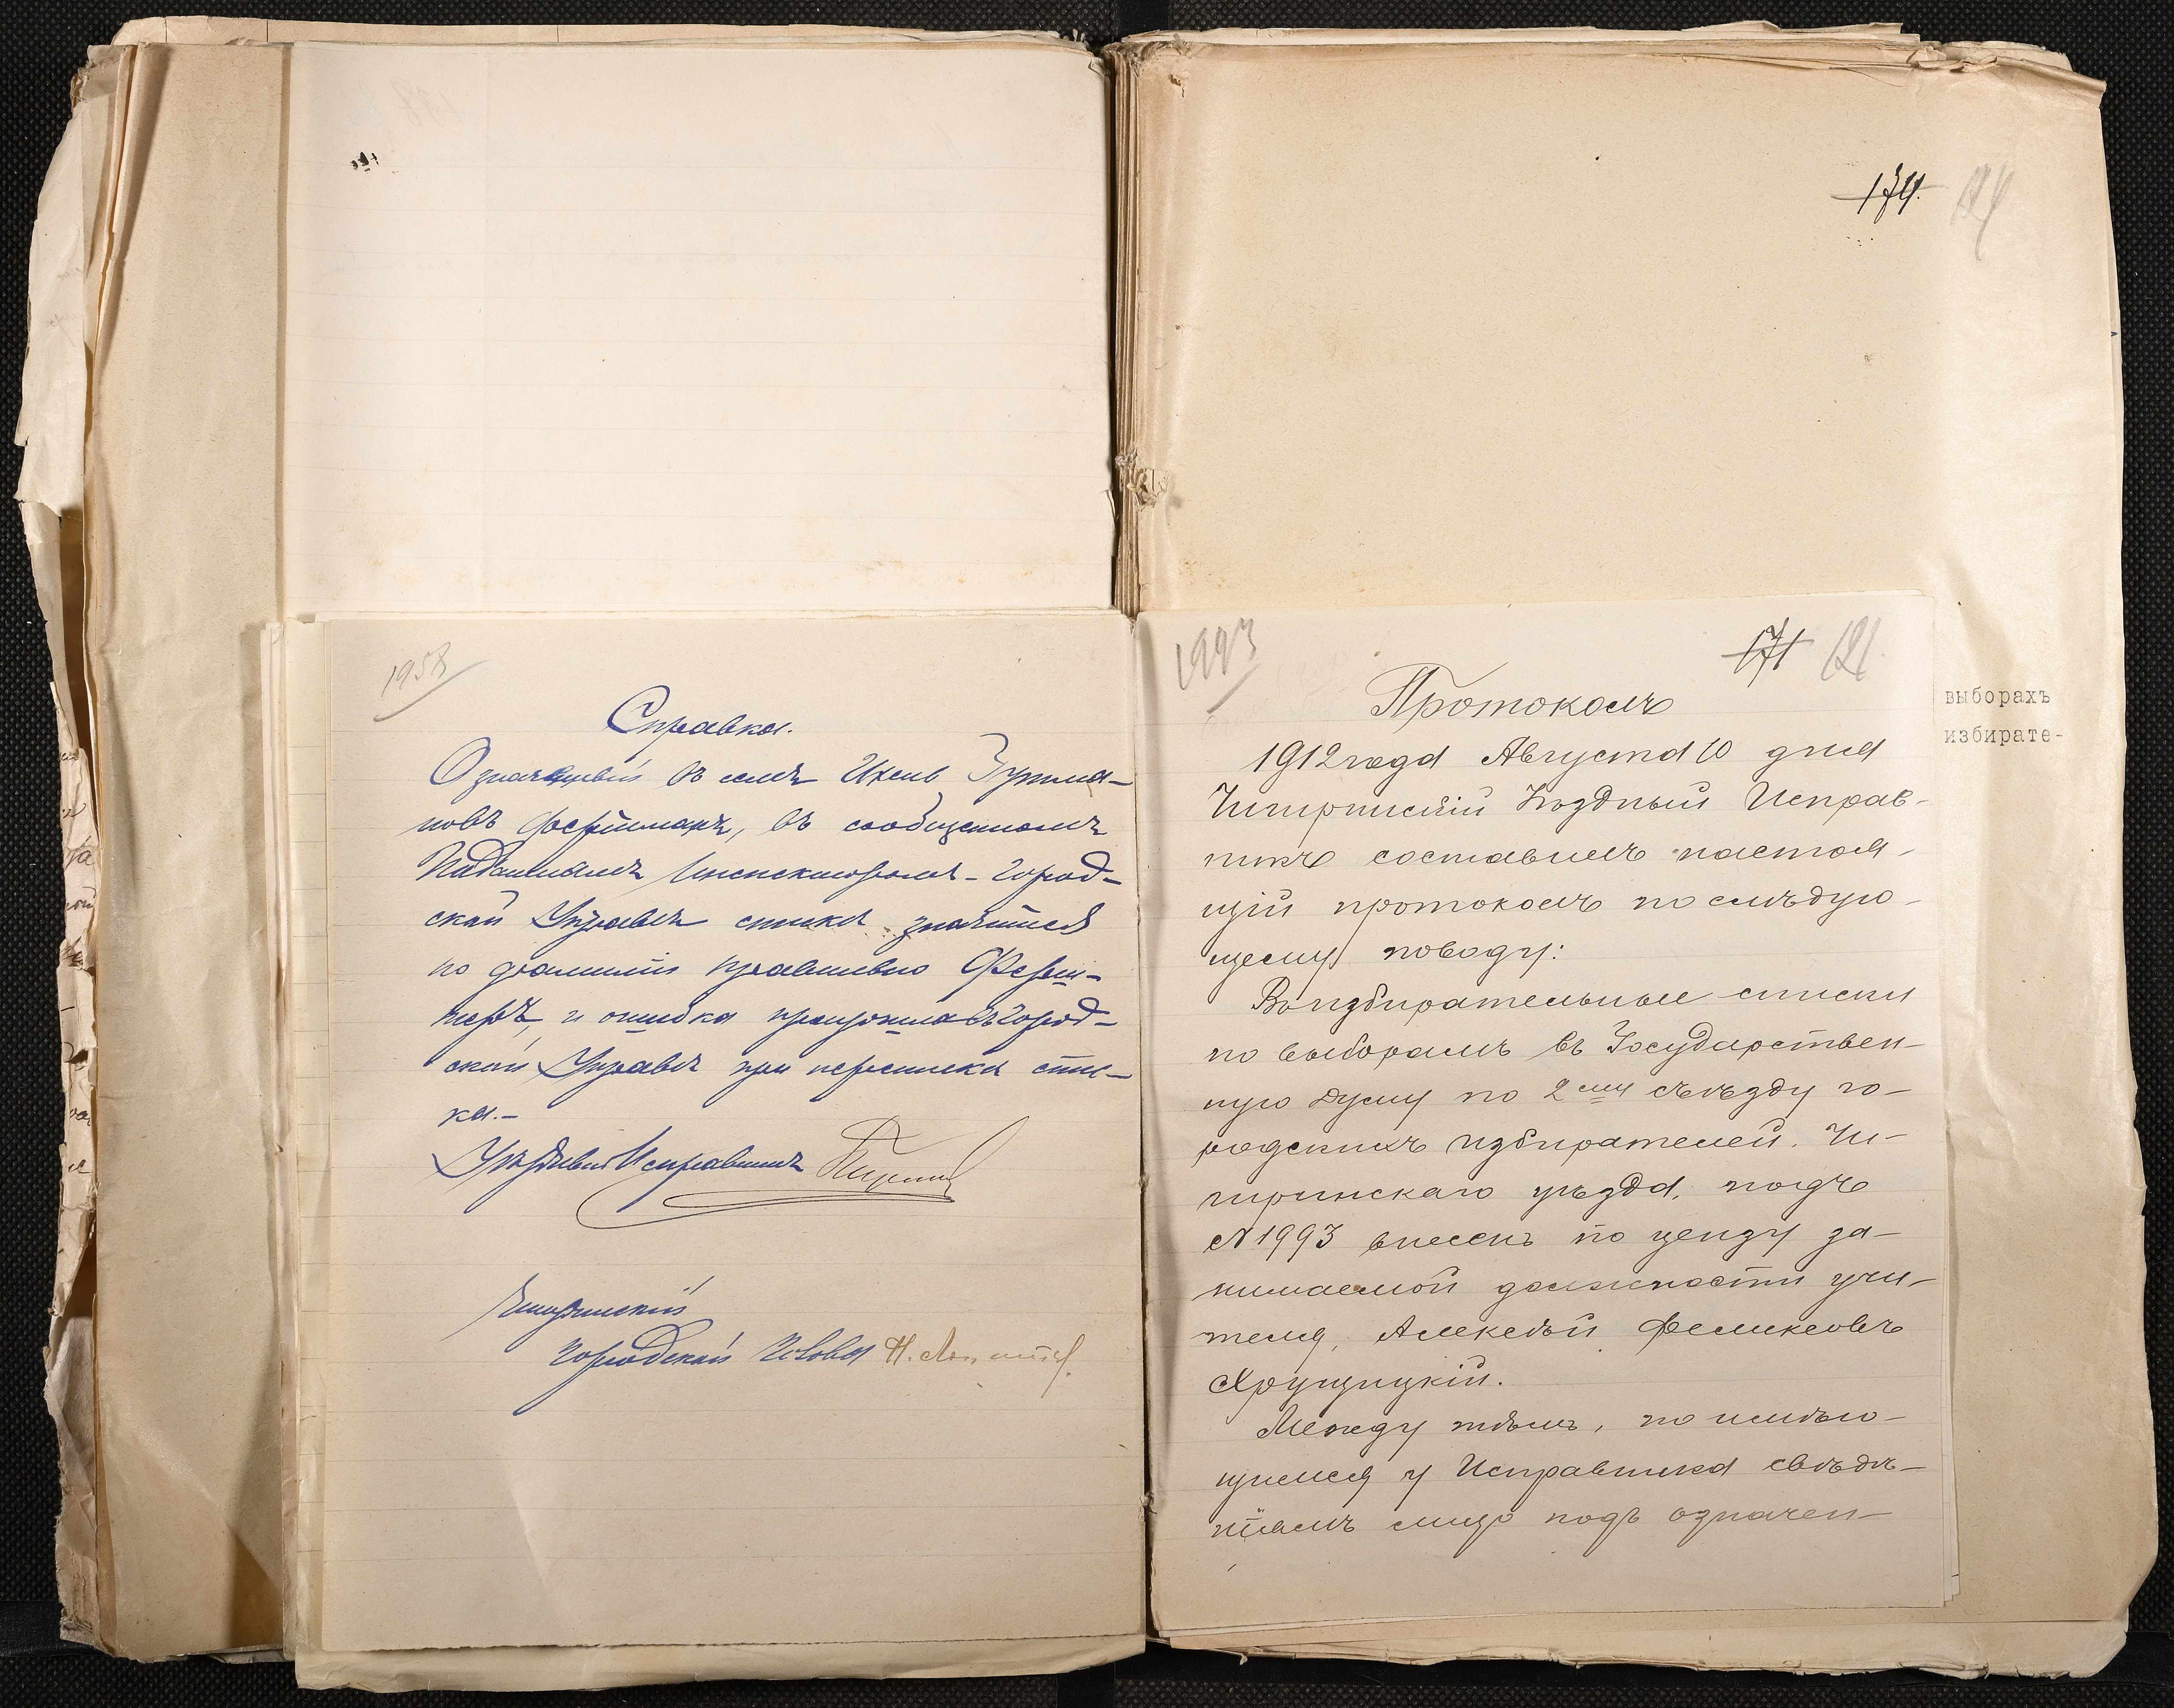 1958
Справка.
Означенный въ семъ Ицко Гутма-
новъ въ сообщенномъ
Податнымъ Инспекторомъ - Город-
ской Управѣ списка значится
по фамиліи правильно Ферш-
теръ, и ошибка произошла въ город-
ской Управѣ при перепискѣ спис-
ка.-
Уѣздный Исправникъ
Чигиринскій
Городской Голова Н.
174.
1993
171 181.
Протоколъ
1912 года Августа 10 дня
Чигиринскій Уѣздный Исправ-
никъ составилъ настоя-
щій протоколъ по слѣдую-
щему поводу:
Въ избирательные списки
по выборамъ въ Государствен-
ную Думу по 2му съѣзду го-
родскихъ избирателей. Чи-
гиринскаго уѣзда, подъ
№ 1993 внесенъ по цензу за-
нимаемой должности учи-
теля, Алексѣй Феликсовъ
Хрущицкій.
Между тѣмъ, по имѣю-
щимся у Исправника свѣдѣ-
ніямъ лицо подъ означен-
выборахъ
избирате-